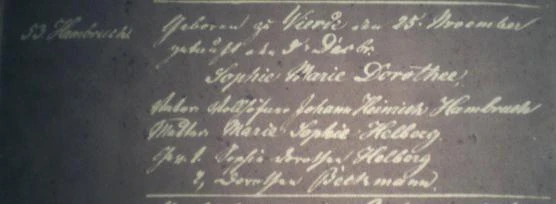 53. Hambruch. Geboren zu Vierde den 25. November
getauft den 9. Decbr.
Sophie Marie Dorothee,
Vater: Vollhöfner Johann Heinrich Hambruch
Mutter Marie Sophie Helberg
Gev. 1. Sophie Dorothea Helberg
2, Dorothea Beckmann.